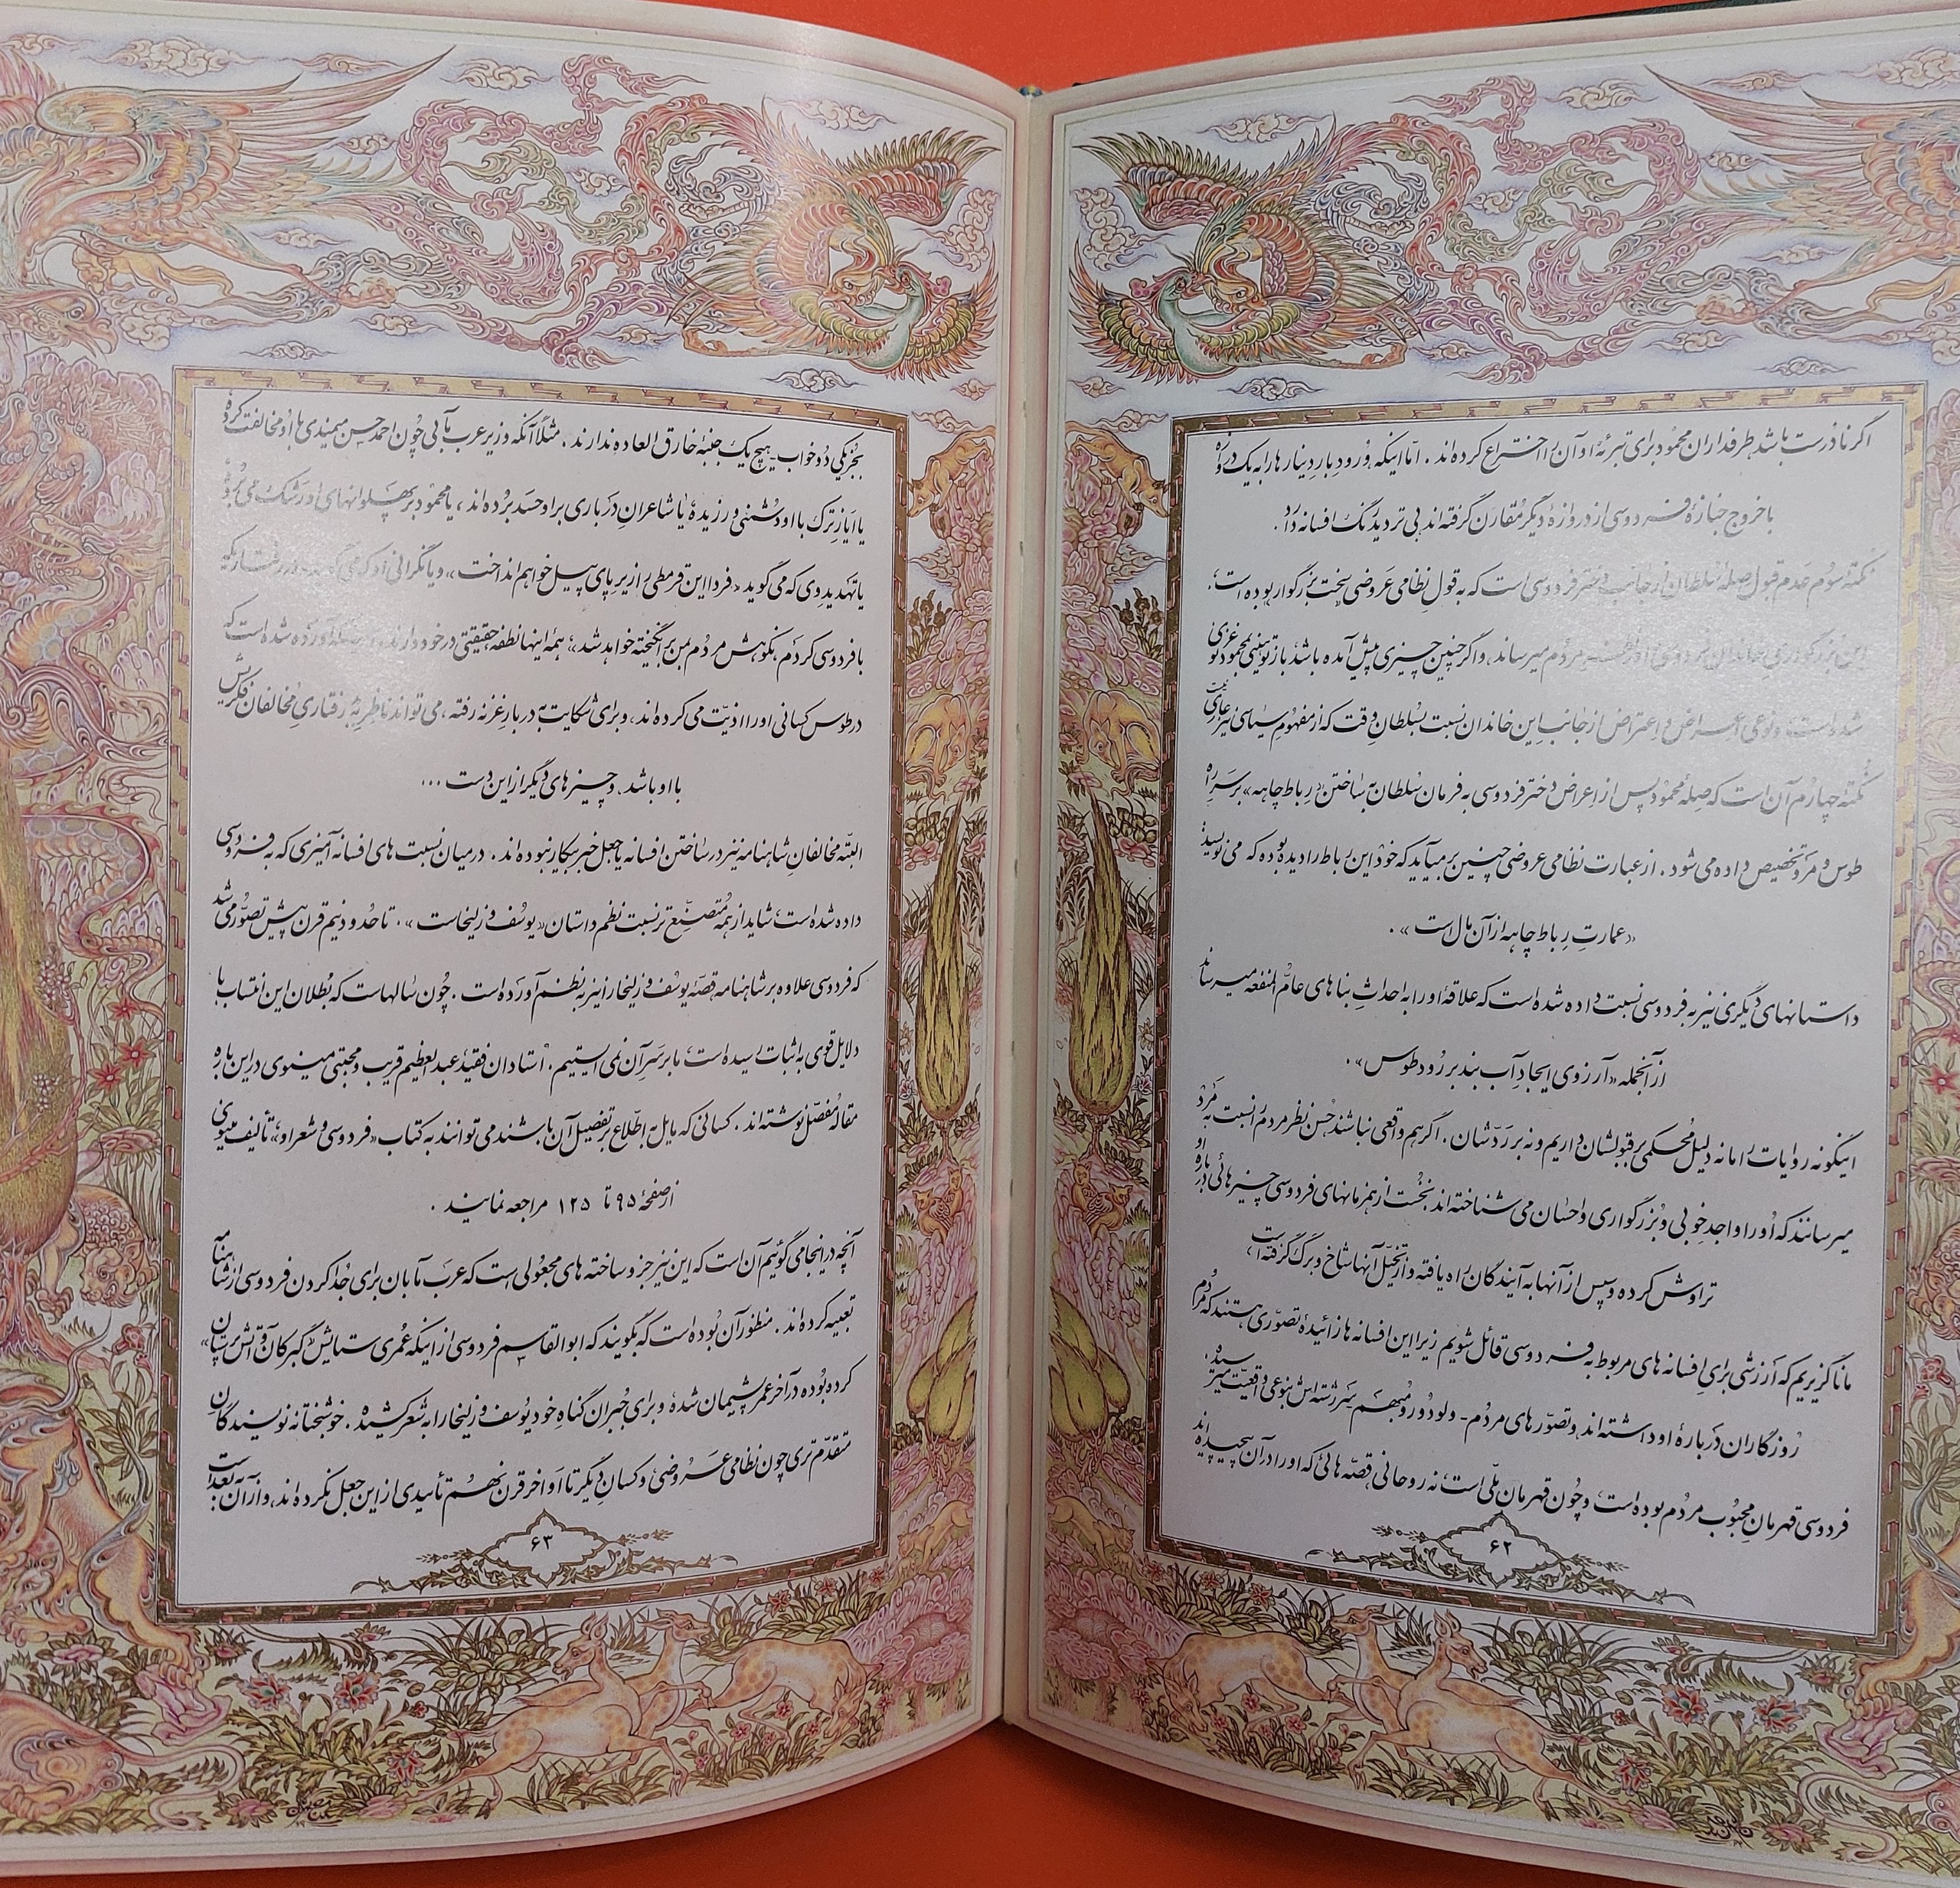 اگر نادرست باشد طرفداران محمود برای تبرئهٔ او آن را اختراع کرده‌اند. امّا اینکه ورود بارِ دینارها را به یک دروازه
با خروج جنازهٔ فردوسی از دروازهٔ دیگر مقارن گرفته‌اند بی‌تردید رنگ افسانه دارد.
نکتهٔ سوّم عدم قبول صلهٔ سلطان از جانب دختر فردوسی است که به قول نظامی عروضی «سخت بزرگوار» بوده است،
این بزرگواری خاندان فردوسی را در نظر مردم میرساند، و اگر چنین چیزی پیش آمده باشد باز توهینی بمحمود غزنوی
شده است و نوعی اعراض و اعتراض از جانب این خاندان نسبت بسلطان وقت که از مفهوم سیاسی نیز عاری نیست
نکتهٔ چهارم آن است که صلهٔ محمود پس از اعراض دختر فردوسی به فرمان سلطان به ساختن «رباط چاهه» بر سر راه
طوس و مرو تخصیص داده می‌شود. از عبارت نظامی عروضی چنین برمیآید که خود این رباط را دیده بوده که می‌نویسد:
«عمارتِ رباط چاهه از آن مال است».
داستانهای دیگری نیز به فردوسی نسبت داده شده است که علاقهٔ او را به احداثِ بناهای عامّ‌المنفعه میرساند
از آنجمله «آرزوی ایجاد آب‌بند بر رود طوس».
اینگونه روایات را ما نه دلیل محکمی بر قبولشان داریم و نه بر ردّشان. اگر هم واقعی نباشند حسن نظر مردم را نسبت به مرد
میرسانند که او را واجد خوبی و بزرگواری و احسان می‌شناخته‌اند. نخست از همزمانهای فردوسی چیزهائی دربارهٔ او
تراوش کرده و سپس از آنها به آیندگان راه یافته و از تخیّل آنها شاخ و برگ گرفته است،
ما ناگزیریم که ارزشی برای افسانه‌های مربوط به فردوسی قائل شویم زیرا این افسانه‌ها زائیدهٔ تصوّری هستند که مردم
روزگاران دربارهٔ او داشته‌اند و تصوّرهای مردم - ولو دور و مبهم سررشته‌اش بنوعی واقعیّت میرسیده.
فردوسی قهرمان محبوب مردم بوده است، و چون قهرمان ملّی است نه روحانی، قصّه‌هائی که او را در آن پیچیده‌اند
۶۲
بجز یکی دو خواب - هیچ یک جنبهٔ خارق‌العاده ندارند. مثلاً آنکه وزیر عرب‌مآبی چون احمد حسن میمندی با او مخالفت کرده
یا ایاز ترک با او دشمنی ورزیده، یا شاعران درباری بر او حسد برده‌اند، یا محمود بر پهلوانهای او رشک می‌برده
یا تهدید وی که می‌گوید «فردا این قرمطی را زیر پای پیل خواهم انداخت» و یا نگرانی او که رفتاریکه
با فردوسی کردم بنکوهش مردم بمن برانگیخته خواهد شد، همه اینها نطفه حقیقتی در خود دارند. آورده شده است که
در طوس کسانی او را اذیّت می‌کرده‌اند، و برای شکایت به دربار غزنه رفته، می‌تواند ناظر به بدرفتاری مخالفان فکریش
با او باشد، و چیزهای دیگر از این دست...
البتّه مخالفان شاهنامه نیز در ساختن افسانه یا جعل خبر بیکار نبوده‌اند. در میان نسبت‌های افسانه‌آمیزی که به فردوسی
داده شده است، شاید از همه متصنّع‌تر نسبت نظم داستان «یوسف و زلیخاست». تا حدود نیم قرن پیش تصوّر می‌شد
که فردوسی علاوه بر شاهنامه قصّهٔ یوسف و زلیخا را نیز به نظم آورده است. چون سالهاست که بطلان این انتساب با
دلایل قوی به اثبات رسیده است، ما بر سر آن نمی‌ایستیم. استادان فقید عبدالعظیم قریب و مجتبی مینوی در این باره
مقالهٔ مفصّل نوشته‌اند. کسانی که مایل به اطّلاع بر تفصیل آن باشند می‌توانند به کتاب «فردوسی و شعر او» تألیف مینوی
از صفحهٔ ۹۵ تا ۱۲۵ مراجعه نمایند.
آنچه در اینجا می‌گوئیم آن است که این نیز جزو ساخته‌های مجعولی است که عرب‌مآبان برای جدا کردن فردوسی از شاهنامه
تعبیه کرده‌اند. منظور آن بوده است که بگویند که ابوالقاسم فردوسی از اینکه عمری ستایش «گبرکان و آتش‌پرستان»
کرده بوده در آخر عمر پشیمان شده و برای جبران گناه خود یوسف و زلیخا را به شعر کشیده. خوشبختانه نویسندگان
متقدّم‌تری چون نظامی عروضی و کسان دیگر تا اواخر قرن نهم تأییدی از این جعل نکرده‌اند، و از آن به بعد است
۶۳